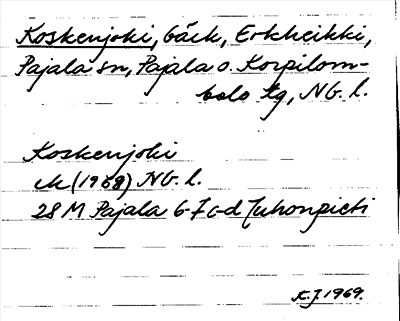 Koskenjoki, bäck, Erkheikki,
Pajala sn, Pajala o. Korpilom-
bolo tg, Nb. l.
Koskenjoki
ek (1968) Nb. l.
28 M Pajala 6-7 c-d Juhonpieti
K.J. 1969.